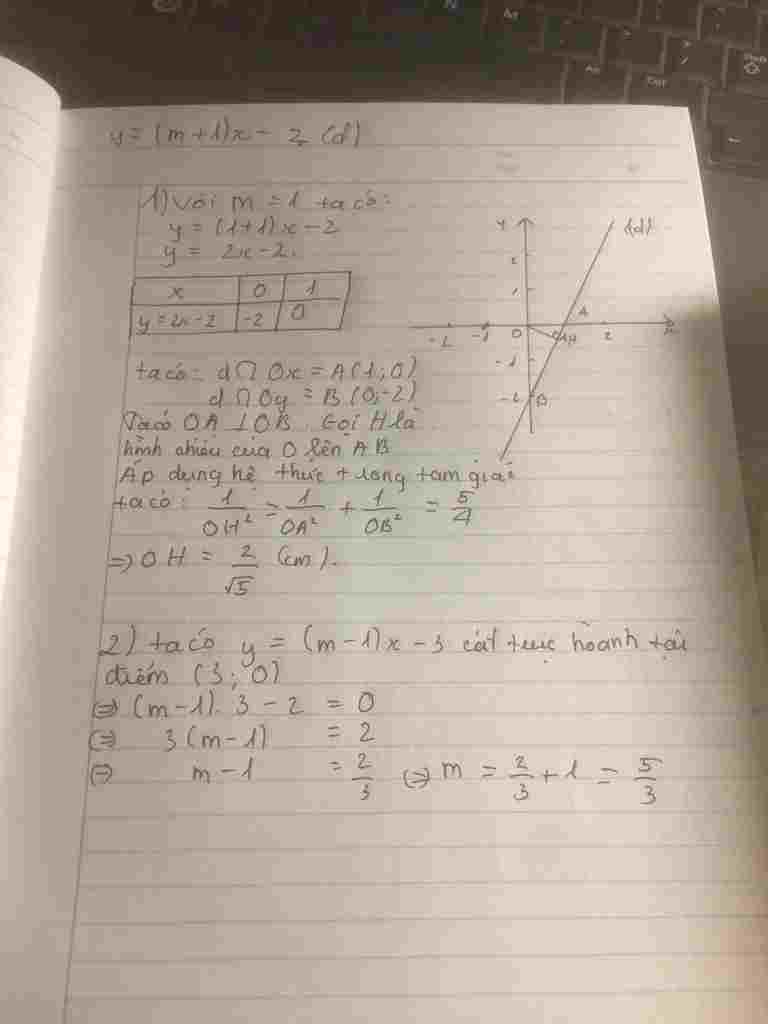 y = (m+1)x - 2 (d)
1) Với m = 1 ta có:
y = (1+1)x - 2
y = 2x - 2.
x 0 1
y = 2x - 2 -2 0
y
(d)
2
1
A
-2 -1 O H 2 x
-1
-2 B
ta có: d ∩ Ox = A(1; 0)
d ∩ Oy = B(0; -2)
Ta có OA ⊥ OB. Gọi H là
hình chiếu của O lên AB
Áp dụng hệ thức trong tam giác
ta có: 1/OH² = 1/OA² + 1/OB² = 5/4
=> OH = 2/√5 (cm).
2) ta có y = (m-1)x - 3 cắt trục hoành tại
điểm (3; 0)
(=) (m-1). 3 - 2 = 0
(=) 3(m-1) = 2
(=) m - 1 = 2/3 (=) m = 2/3 + 1 = 5/3